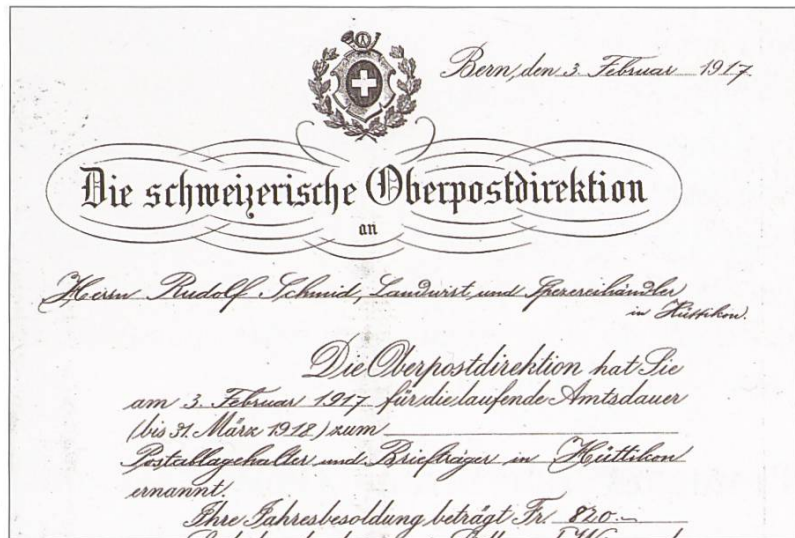 Bern, den 3. Februar 1917
Die schweizerische Oberpostdirektion
an
Herrn Rudolf Schmid, Landwirt und Spezereihändler
in Hüttikon.
Die Oberpostdirektion hat Sie
am 3. Februar 1917 für die laufende Amtsdauer
(bis 31. März 1918) zum
Postablagehalter und Briefträger in Hüttikon
ernannt.
Ihre Jahresbesoldung beträgt Fr. 820.–